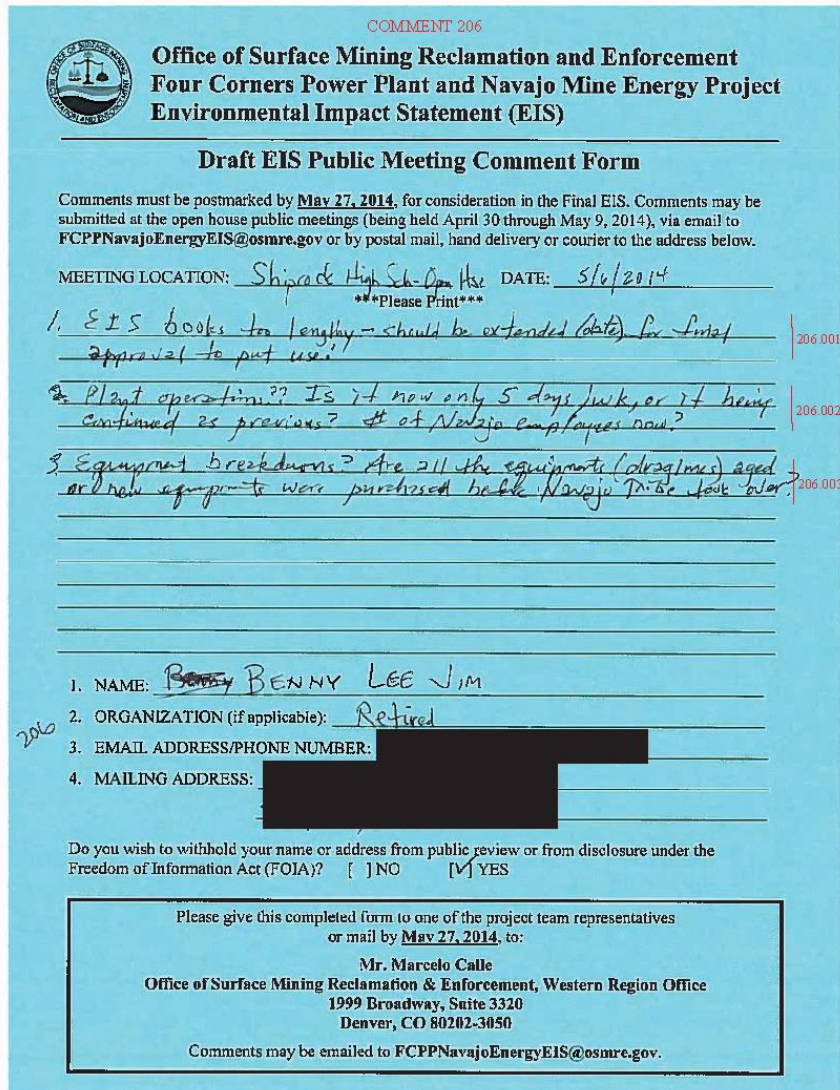 COMMENT 206
Office of Surface Mining Reclamation and Enforcement
Four Corners Power Plant and Navajo Mine Energy Project
Environmental Impact Statement (EIS)
Draft EIS Public Meeting Comment Form
Comments must be postmarked by May 27, 2014, for consideration in the Final EIS. Comments may be
submitted at the open house public meetings (being held April 30 through May 9, 2014), via email to
FCPPNavajoEnergyEIS@osmre.gov or by postal mail, hand delivery or courier to the address below.
MEETING LOCATION: Shiprock High Sch-Open Hse DATE: 5/6/2014
***Please Print***
1. EIS books too lengthy - should be extended (date) for final
approval to put use!
206.001
2. Plant operation?? Is it now only 5 days /wk, or it being
continued as previous? # of Navajo employees now?
206.002
3 Equipment breakdowns? Are all the equipments (draglines) aged
or new equipments were purchased before Navajo Tribe took over?
206.003
1. NAME: BENNY LEE JIM
2. ORGANIZATION (if applicable): Retired
206
3. EMAIL ADDRESS/PHONE NUMBER:
4. MAILING ADDRESS:
Do you wish to withhold your name or address from public review or from disclosure under the
Freedom of Information Act (FOIA)? [ ] NO [✓] YES
Please give this completed form to one of the project team representatives
or mail by May 27, 2014, to:
Mr. Marcelo Calle
Office of Surface Mining Reclamation & Enforcement, Western Region Office
1999 Broadway, Suite 3320
Denver, CO 80202-3050
Comments may be emailed to FCPPNavajoEnergyEIS@osmre.gov.